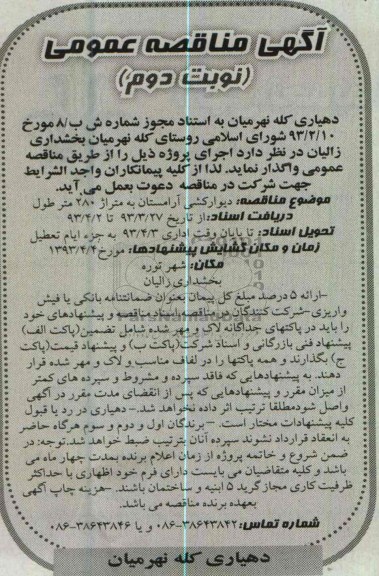 آگهی مناقصه عمومی
(نوبت دوم)
دهیاری کله نهرمیان به استناد مجوز شماره ش ب/۸ مورخ
۹۳/۲/۱۰ شورای اسلامی روستای کله نهرمیان بخشداری
زالیان در نظر دارد اجرای پروژه ذیل را از طریق مناقصه
عمومی واگذار نماید. لذا از کلیه پیمانکاران واجد الشرایط
جهت شرکت در مناقصه دعوت بعمل می آید.
موضوع مناقصه: دیوارکشی آرامستان به متراژ ۲۸۰ متر طول
دریافت اسناد: از تاریخ ۹۳/۳/۲۷ تا ۹۳/۴/۲
تحویل اسناد: تا پایان وقت اداری ۹۳/۴/۳ به جزء ایام تعطیل
زمان و مکان گشایش پیشنهادها: مورخ ۱۳۹۳/۴/۴
مکان: شهر توره
بخشداری زالیان
-ارائه ۵ درصد مبلغ کل پیمان بعنوان ضمانتنامه بانکی یا فیش
واریزی -شرکت کنندگان در مناقصه اسناد مناقصه و پیشنهادهای خود
را باید در پاکتهای جداگانه لاک و مهر شده شامل تضمین(پاکت الف)
پیشنهاد فنی بازرگانی و اسناد شرکت(پاکت ب) و پیشنهاد قیمت(پاکت
ج) بگذارند و همه پاکتها را در لفاف مناسب و لاک و مهر شده قرار
دهند. به پیشنهادهایی که فاقد سپرده و مشروط و سپرده های کمتر
از میزان مقرر و پیشنهادهایی که پس از انقضای مدت مقرر در آگهی
واصل شود مطلقا ترتیب اثر داده نخواهد شد.- دهیاری در رد یا قبول
کلیه پیشنهادات مختار است. - برندگان اول و دوم و سوم هرگاه حاضر
به انعقاد قرارداد نشوند سپرده آنان بترتیب ضبط خواهد شد. توجه: در
ضمن شروع و خاتمه پروژه از زمان اعلام برنده بمدت چهار ماه می
باشد و کلیه متقاضیان می بایست دارای فرم خود اظهاری با حداکثر
ظرفیت کاری مجاز گرید ۵ ابنیه و ساختمان باشند. -هزینه چاپ آگهی
بعهده برنده مناقصه می باشد.
شماره تماس: ۳۸۶۴۳۸۴۲-۰۸۶ و یا ۳۸۶۴۳۸۴۶-۰۸۶
دهیاری کله نهرمیان